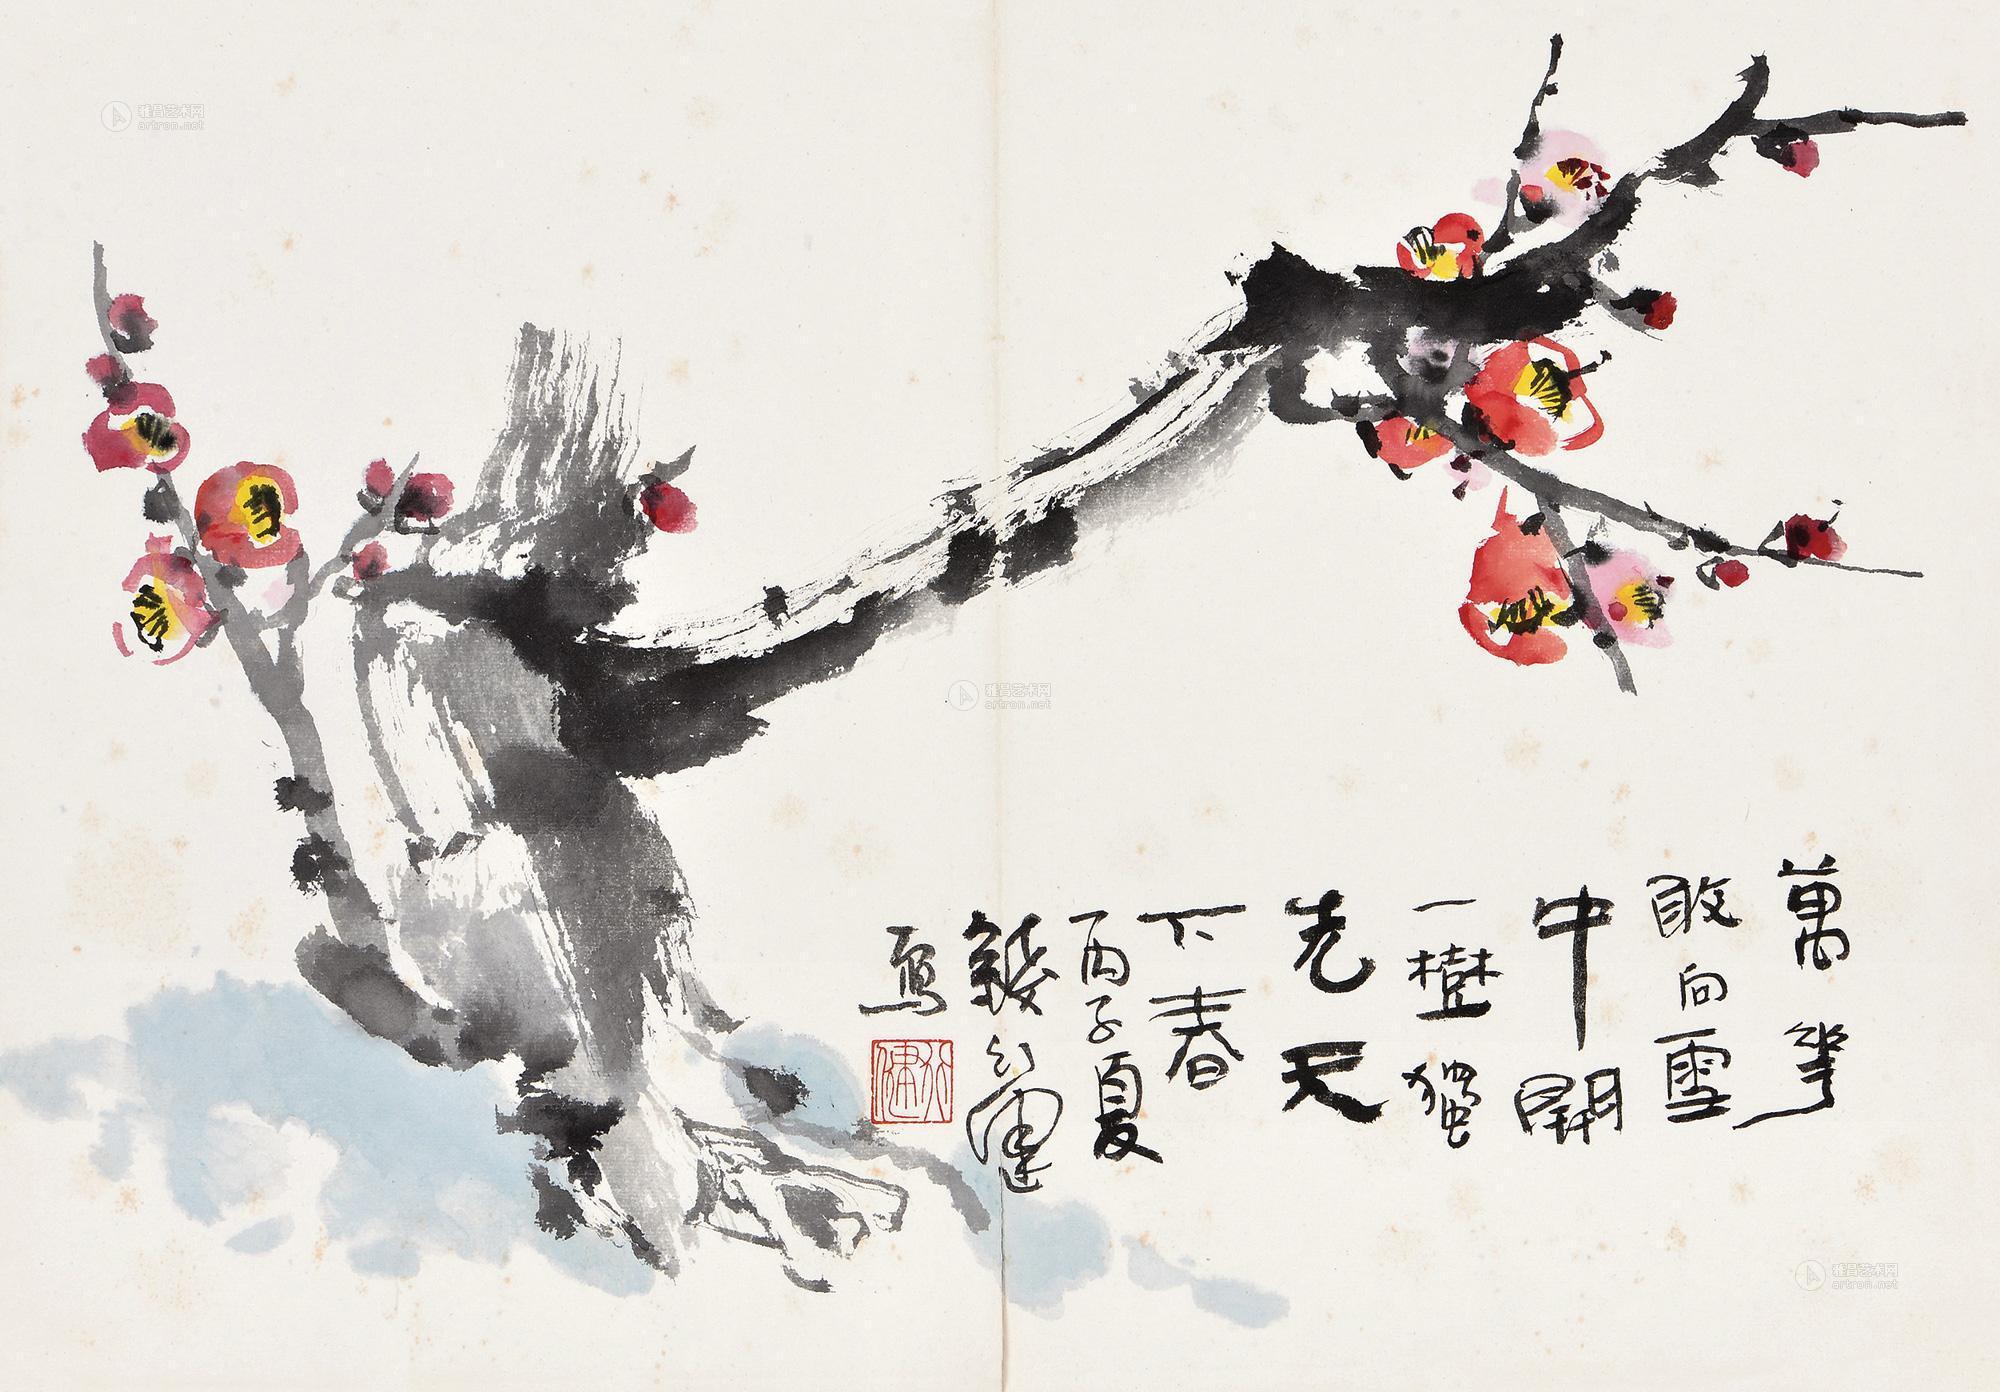 雅昌艺术网
artron.net
雅昌艺术网
artron.net
萬華
敢向雪
中開
一樹獨
先天
下春
丙子夏
錢行健
寫
行健
雅昌艺术网
artron.net